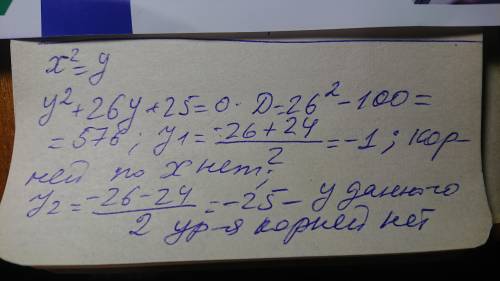 x²=y
y²+26y+25=0. D=26²-100=
=576; y₁=(-26+24)/2=-1; кор-
ней по x нет;
y₂=(-26-24)/2=-25- у данного
ур-я корней нет